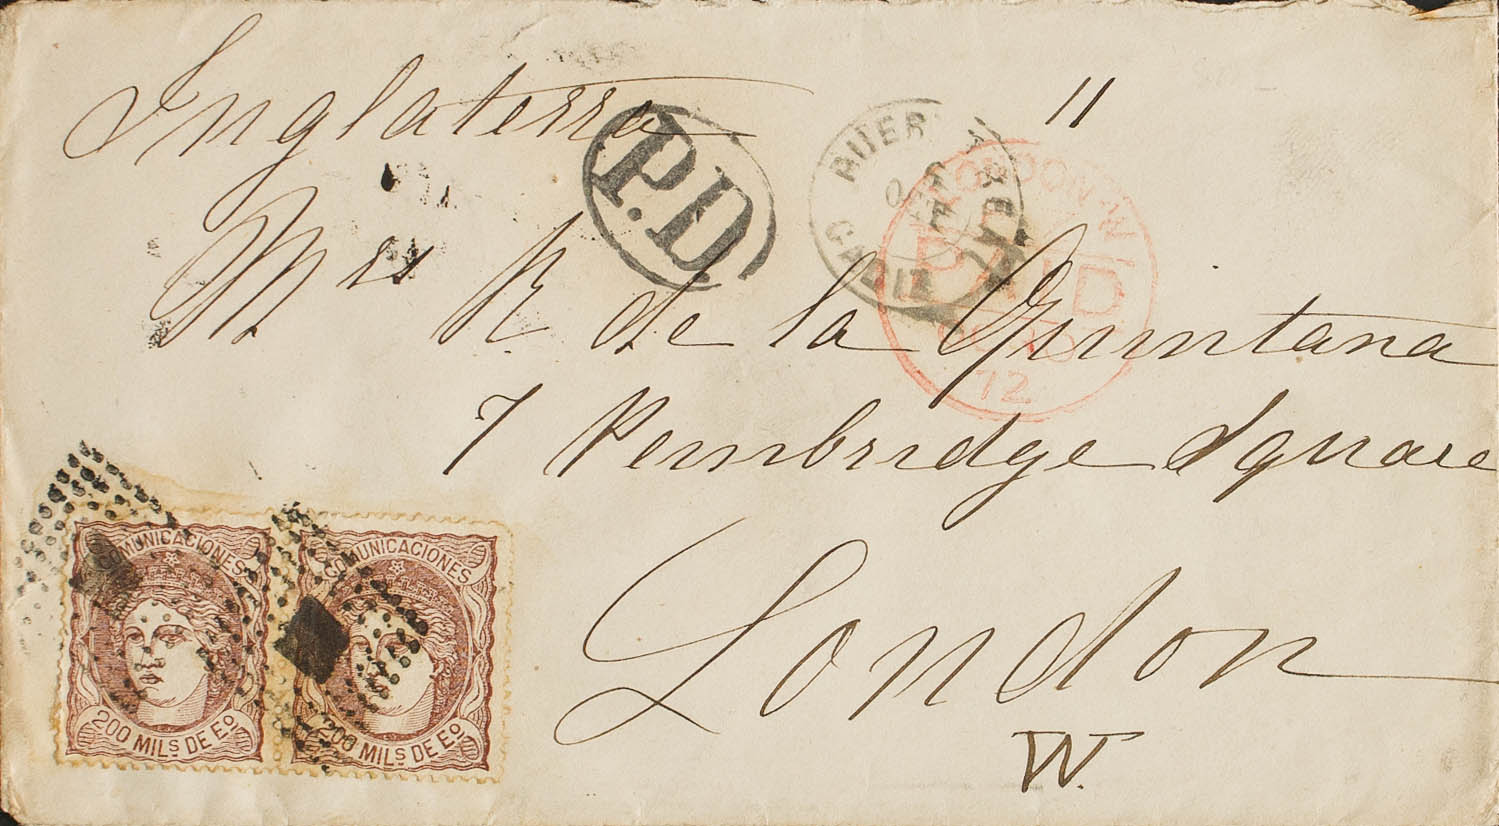 Inglaterra
11
P.D.
CADIZ
LONDON · W
PAID
72
Mrs R de la Quintana
7 Pembridge Square
London
W.
COMUNICACIONES
200 MILS DE EO
COMUNICACIONES
200 MILS DE EO